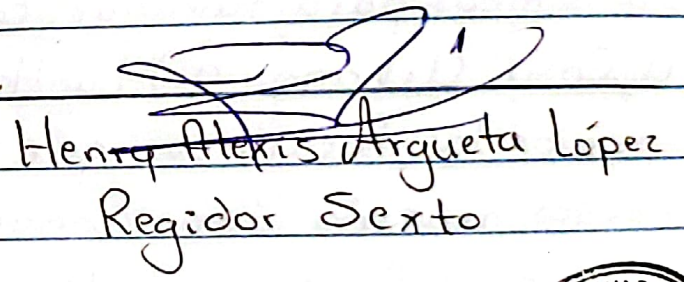 Henry Alexis Argueta López
Regidor Sexto